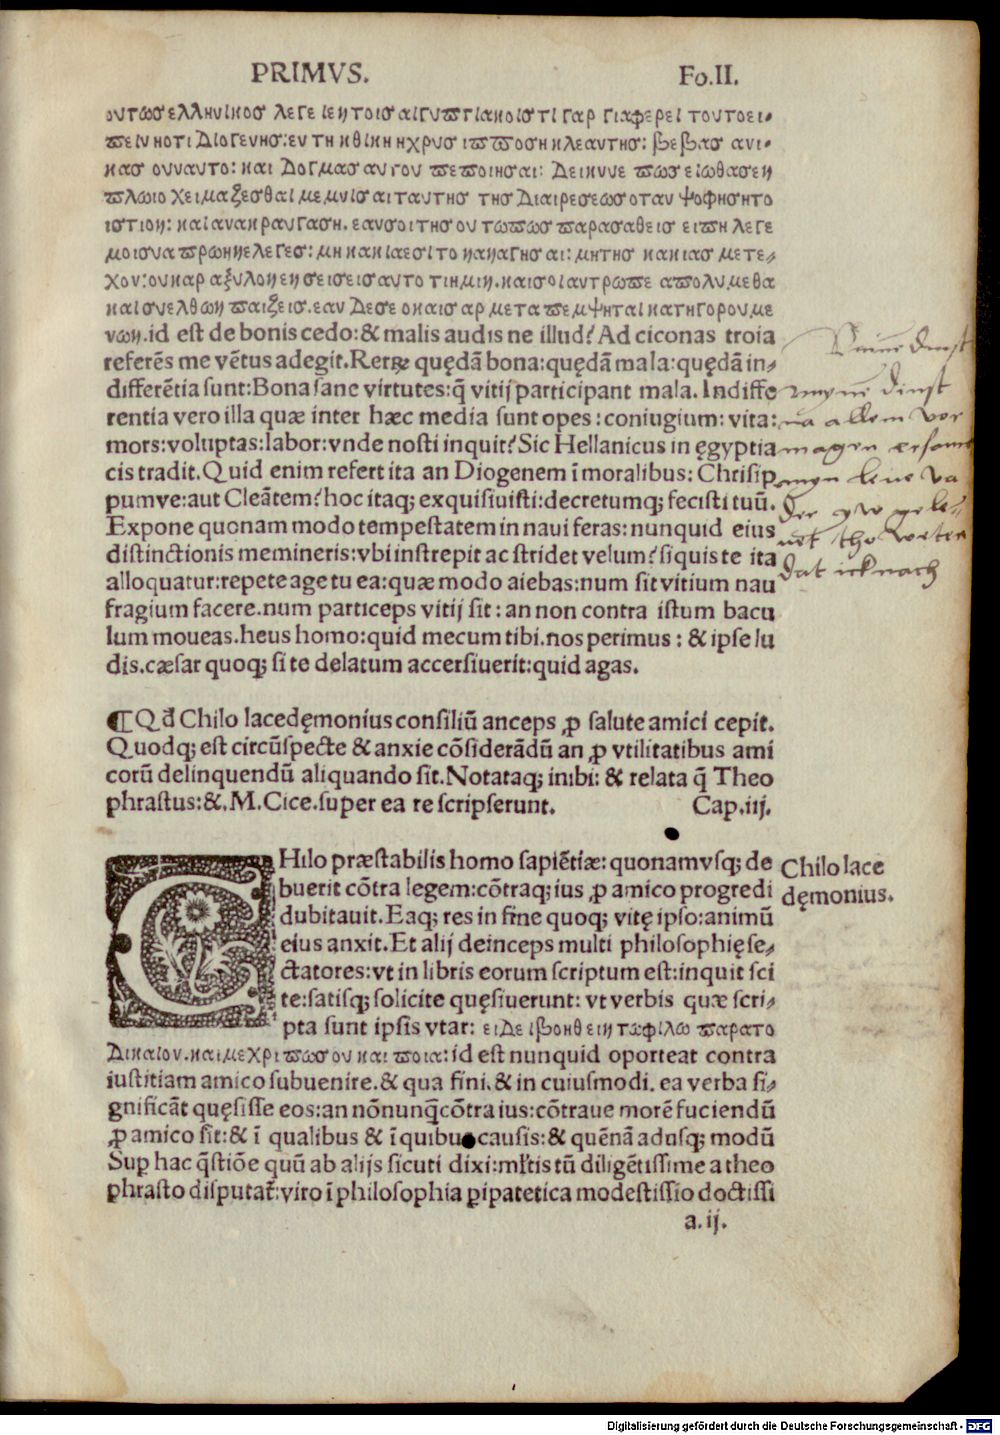 PRIMVS. Fo.II.
ουτωσελληνικοσ λεγε ιεντοισ αιγυπτιακοιστι γαρ γιαφερει τουτοει•
πεινηοτι Διογενησ:εν τη ηθικη ηχρυσ ιππποση κλεαντησ: βεβασ ανι•
κασ ουναυτο: και Δογμασ αυτου πεποιησαι: Δεικνυε πωσ ειωθασεν
πλωιο χειμαξεσθαι μεμνισ αι ταυτησ τησ Διαιρεσεωσ οταν ψοφησητο
ιστιον: και ανακραυγαση. εαυσοιτησ ου τωπωσ παρασαθεισ ειπη λεγε
μοισυα πρωηηελεγεσ: μη κακιαεσι το ναυαγησ αι: μητησ κακιασ μετε⸗
χον:ουκαρ αξυλονεν σεισεισαυτο τιημιν.καισοιαντρωπε απολυ.μεθα
και συελθων παιξεισ.εαν Δεσε οκαισ αρ μεταπεμψηται κατηγορουμε
νων.id est de bonis cedo:& malis audis ne illud? Ad ciconas troia
referēs me vētus adegit.Rerꝝ quędā bona:quędā mala:quędā in⸗
differētia sunt:Bona sane virtutes:q̄ vitij participant mala. Indiffe
rentia vero illa quæ inter hæc media sunt opes:coniugium: vita:
mors:voluptas:labor:vnde nosti inquit? Sic Hellanicus in ęgyptia
cis tradit.Quid enim refert ita an Diogenem ī moralibus: Chrisip
pumve:aut Cleātem? hoc itaq; exquisiuisti:decretumq; fecisti tuū.
Expone quonam modo tempestatem in naui feras: nunquid eius
distinctionis memineris:vbi instrepit ac stridet velum? si quis te ita
alloquatur:repete age tu ea:quæ modo aiebas:num sit vitium nau
fragium facere.num particeps vitij sit: an non contra istum bacu
lum moueas.heus homo:quid mecum tibi.nos perimus: & ipse lu
dis.cæsar quoq; si te delatum accersiuerit:quid agas.
dinst
na allem
magen
dat ick nach
¶Qd̄ Chilo lacedęmonius consiliū anceps ꝓ salute amici cepit.
Quodq; est circūspecte & anxie cōsiderādū an ꝓ vtilitatibus ami
corū delinquendū aliquando sit.Notataq; inibi: & relata q̄ Theo
phrastus:&.M.Cice.super ea re scripserunt. Cap.iij.
CHilo præstabilis homo sapiētiæ: quonamvsq; de
buerit cōtra legem:cōtraq; ius ꝓ amico progredi
dubitauit.Eaq; res in fine quoq; vitę ipso:animū
eius anxit.Et alij deinceps multi philosophię se⸗
ctatores:vt in libris eorum scriptum est:inquit sci
te:satisq; solicite quęsiuerunt: vt verbis quæ scri⸗
pta sunt ipsis vtar: ειΔε ιβονθειν τωφιλω παρατο
Δικαιον.και μεχρι πωσ ου και ποια:id est nunquid oporteat contra
iustitiam amico subuenire.& qua fini.& in cuiusmodi. ea verba si⸗
gnificāt quęsisse eos:an nōnunq̄ cōtra ius:cōtraue morē fuciendū
ꝓ amico sit:& ī qualibus & ī quibus causis:& quēnā adusq; modū
Sup̱ hac q̄stiōe quū ab alijs sicuti dixi:ml̄tis tū diligētissime a theo
phrasto disputat̄:viro ī philosophia p̱ipatetica modestissio doctissi
Chilo lace
dęmonius.
a.ij.
Digitalisierung gefördert durch die Deutsche Forschungsgemeinschaft - DFG